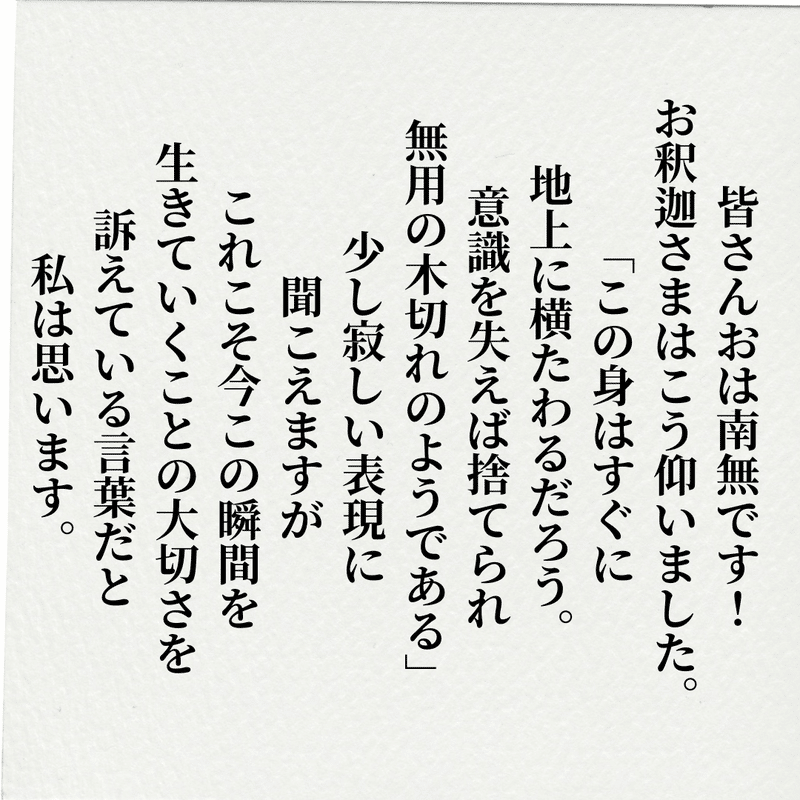 皆さんおは南無です！
お釈迦さまはこう仰いました。
「この身はすぐに
地上に横たわるだろう。
意識を失えば捨てられ
無用の木切れのようである」
少し寂しい表現に
聞こえますが
これこそ今この瞬間を
生きていくことの大切さを
訴えている言葉だと
私は思います。